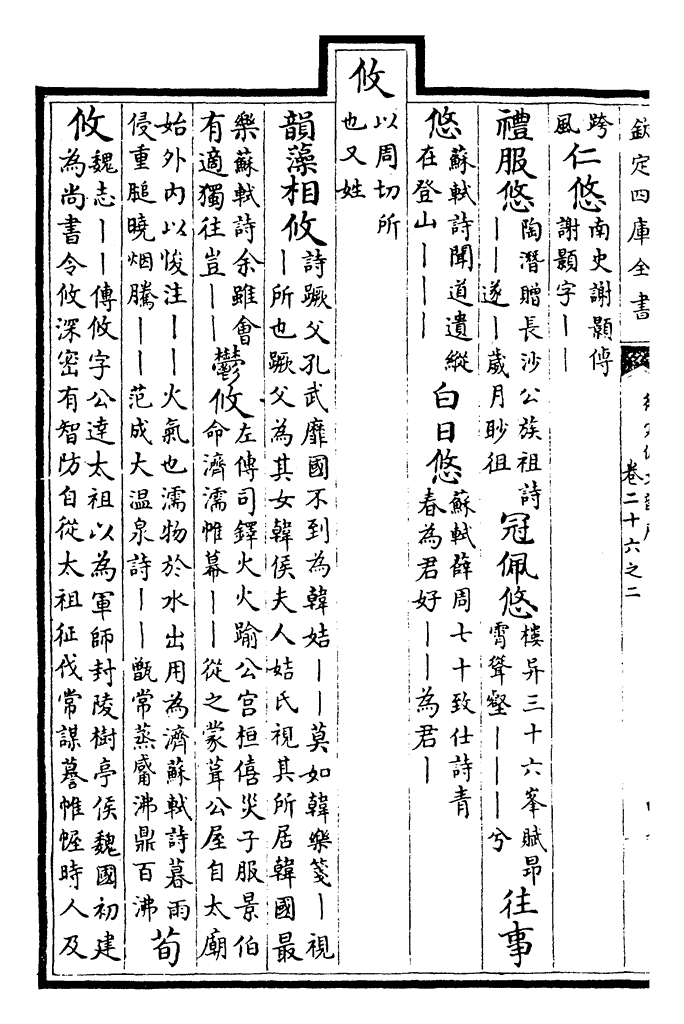 欽定四庫全書
卷二十六之二
跨
風
仁悠
南史謝顥傳
謝顥字丨丨
禮服悠
陶潛贈長沙公族祖詩
丨丨遂丨歲月眇徂
冠佩悠
樓异三十六峯賦昂
霄聳壑丨丨丨兮
往事
悠
蘇軾詩聞道遺縱
在登山丨丨丨
白日悠
蘇軾薛周七十致仕詩青
春為君好丨丨為君丨
攸
以周切所
也又姓
韻藻相攸
詩蹶父孔武靡國不到為韓姞丨丨莫如韓樂箋丨視
丨所也蹶父為其女韓侯夫人姞氏視其所居韓國最
樂蘇軾詩余雖會
有適獨往豈丨丨
鬱攸
左傳司鐸火火踰公宮桓僖災子服景伯
命濟濡帷幕丨丨從之蒙葺公屋自太廟
始外內以悛注丨丨丨火氣也濡物於水出用為濟蘇軾詩暮雨
侵重膇曉烟騰丨丨范成大温泉詩丨丨甑常蒸觱沸鼎百沸
荀
攸
魏志丨丨傳攸字公達太祖以為軍師封陵樹亭侯魏國初建
為尚書令攸深密有智防自從太祖征伐常謀謩帷幄時人及